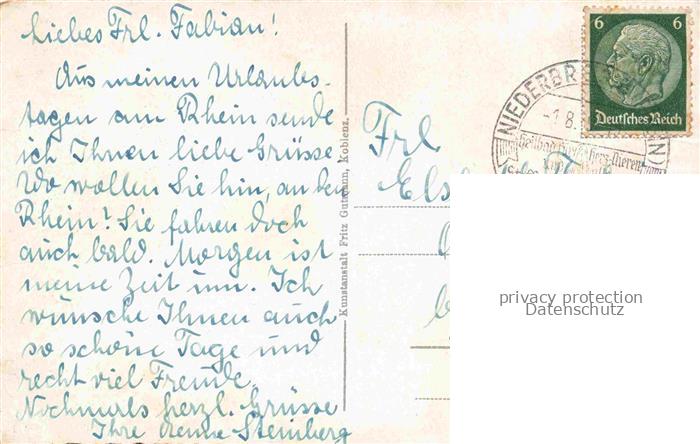 Liebes Frl. Fabian!
Aus meinen Urlaubs-
tagen am Rhein sende
ich Ihnen liebe Grüsse.
Wo wollen Sie hin, an den
Rhein? Sie fahren doch
auch bald. Morgen ist
meine Zeit um. Ich
wünsche Ihnen auch
so schöne Tage und
recht viel Freude.
Nochmals herzl. Grüsse
Ihre Steinberg
Kunstanstalt Fritz Gutmann, Koblenz.
Frl
Els
6 6
Deutsches Reich
NIEDERBR
-1.8.
Heilbad Herz Nieren
privacy protection
Datenschutz